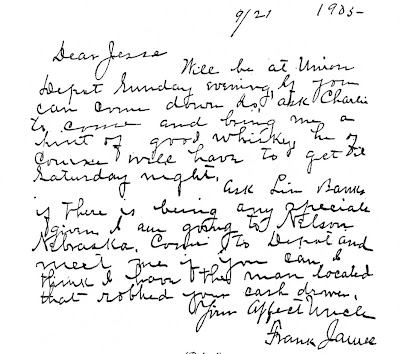 9/21 1905-
Dear Jesse
Will be at Union
Depot Sunday evening, if you
can come down do, ask Charlie
to come and bring me a
pint of good whiskey, he of
course will have to get it
Saturday night.
Ask Lin Banks
if there is being any specials
given I am going to Nelson
Nebraska. Come to Depot and
meet me if you can, I
think I have the man located
that robbed your cash drawer.
Your affect Uncle
Frank James